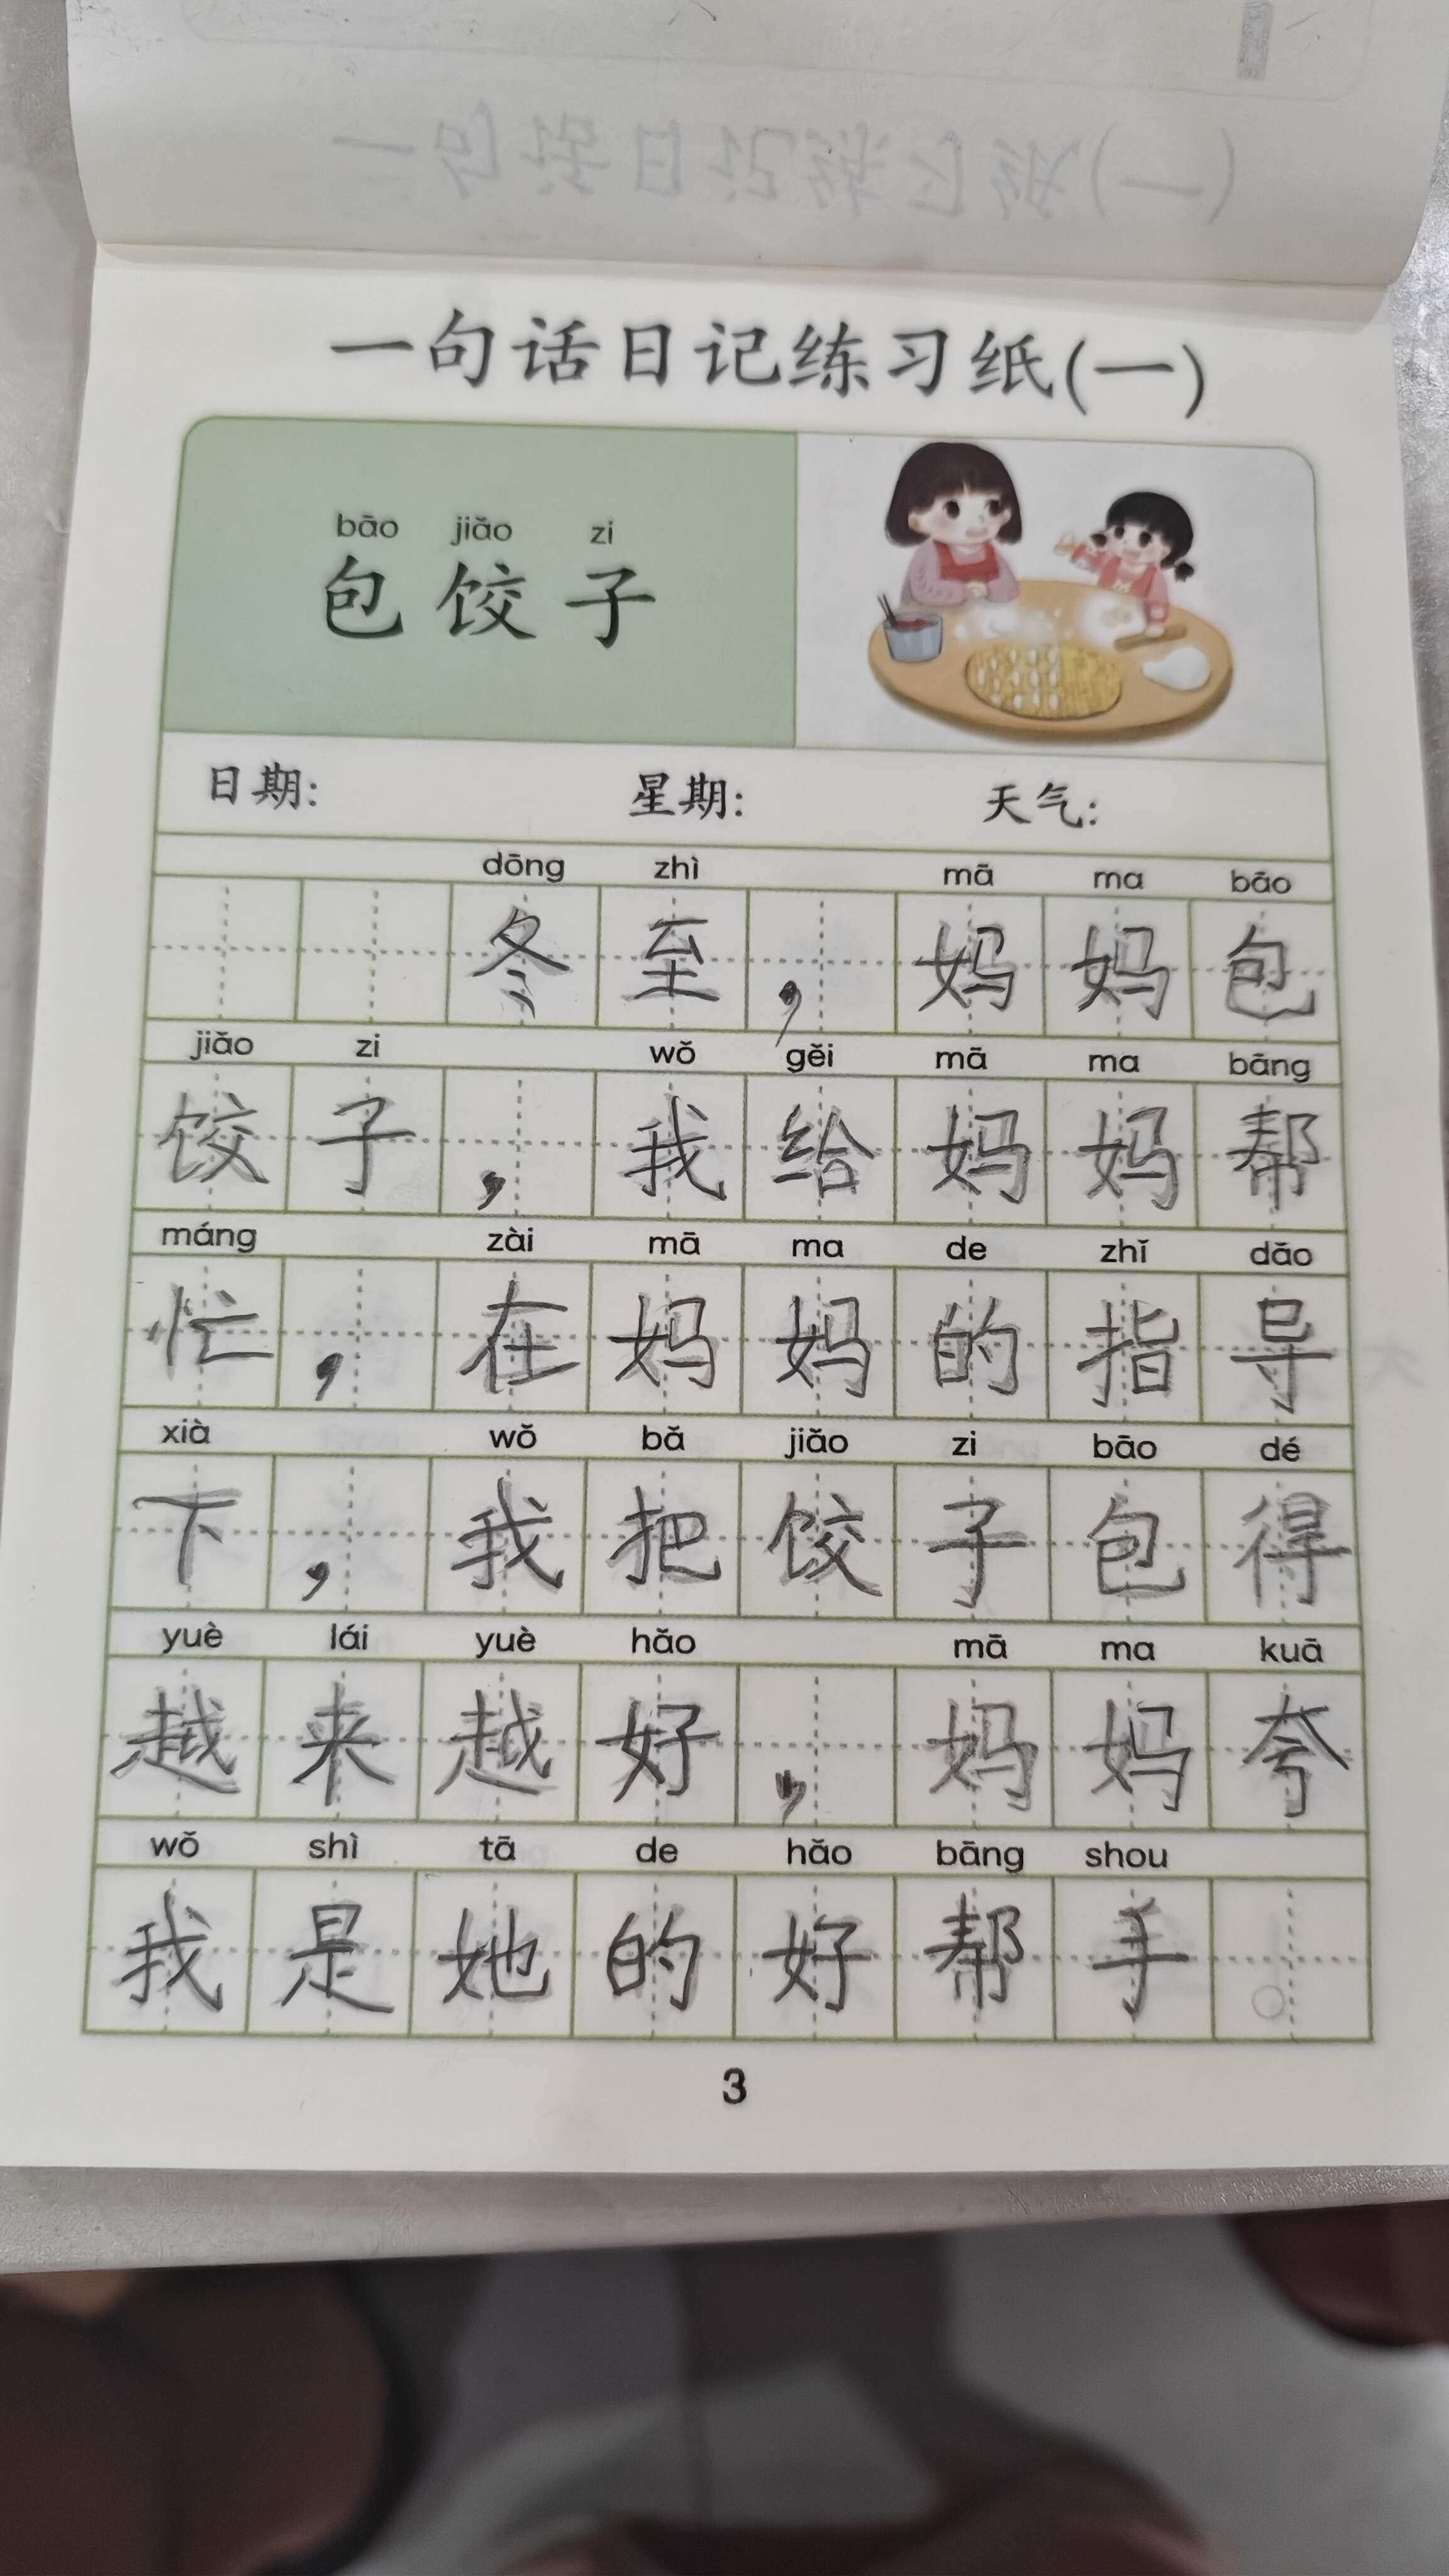 一句话日记练习纸(一)
bāo jiǎo zi
包饺子
日期: 星期: 天气:
dōng zhì mā ma bāo
冬至，妈妈包
jiǎo zi wǒ gěi mā ma bāng
饺子，我给妈妈帮
máng zài mā ma de zhǐ dǎo
忙，在妈妈的指导
xià wǒ bǎ jiǎo zi bāo dé
下，我把饺子包得
yuè lái yuè hǎo mā ma kuā
越来越好，妈妈夸
wǒ shì tā de hǎo bāng shou
我是她的好帮手。
3